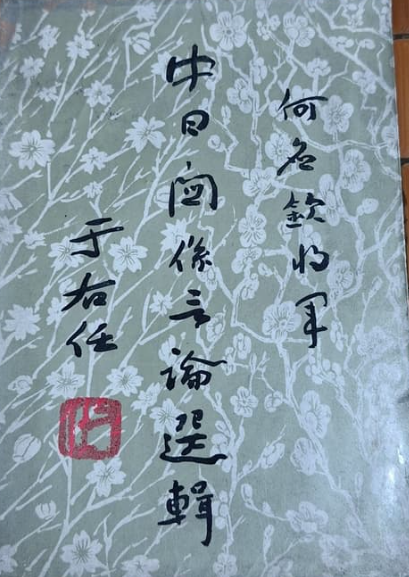 何應欽將軍
中日關係言論選輯
于右任